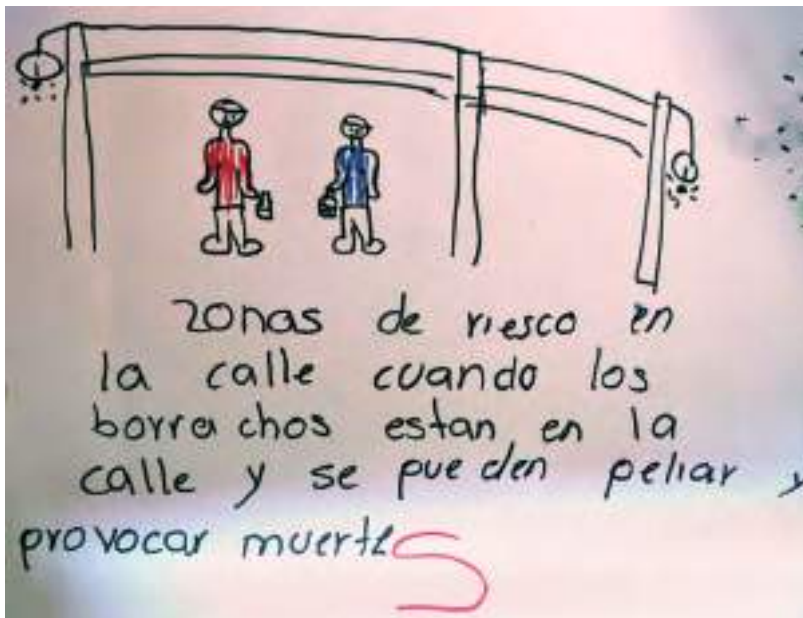 zonas de riesco en
la calle cuando los
borrachos estan en la
calle y se pueden peliar y
provocar muertes